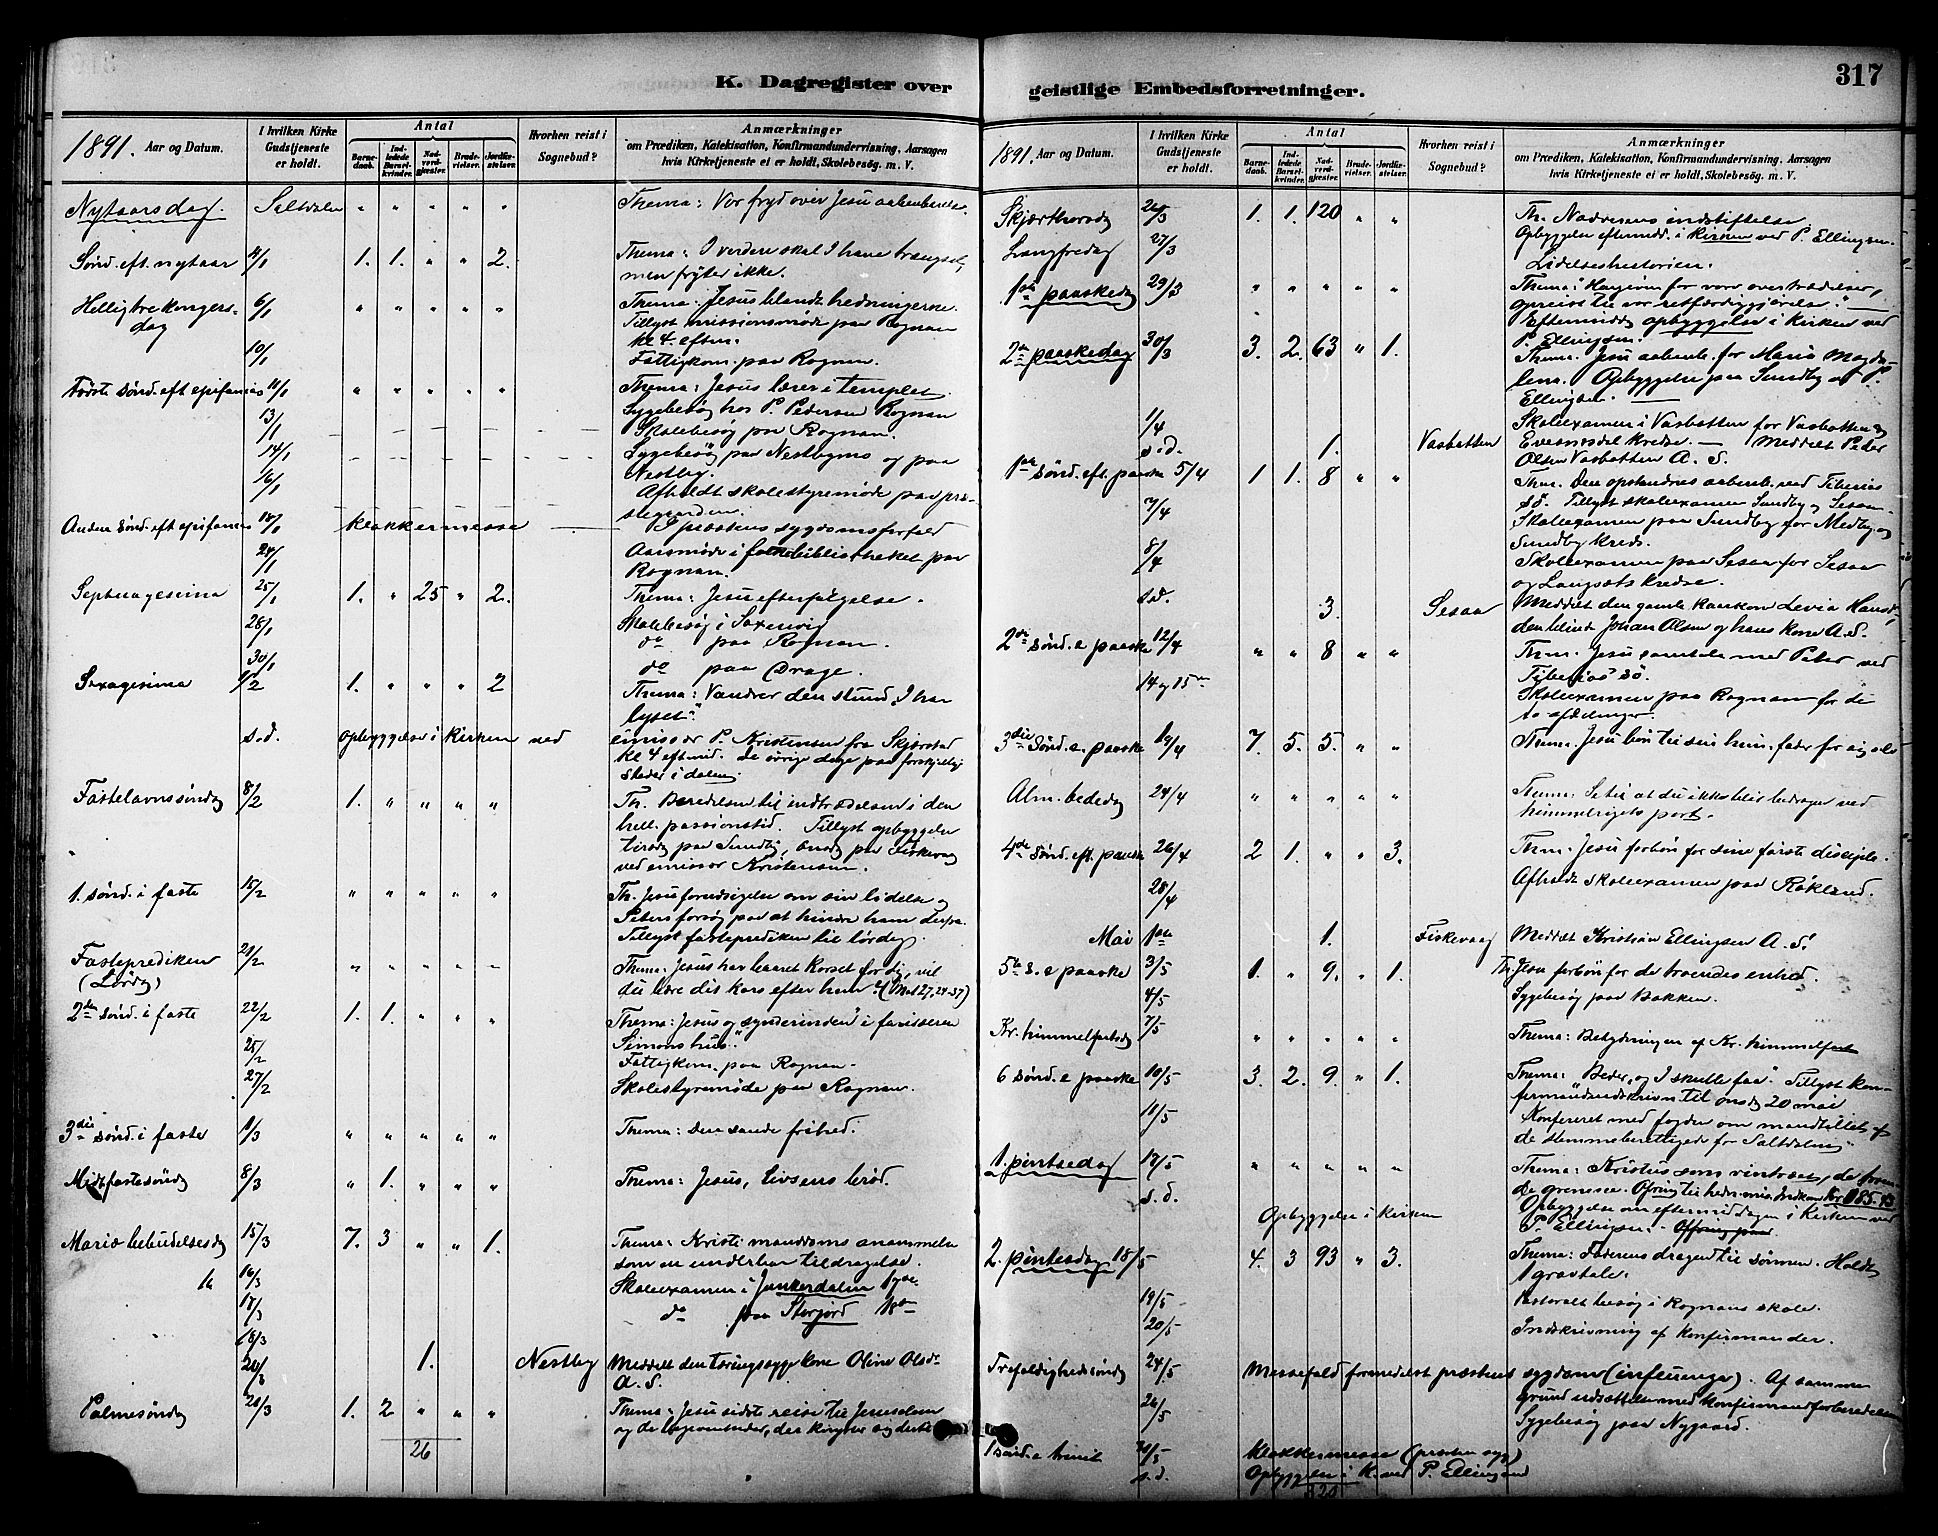 K. Dagregister over
1891. Aar og Datum.
I hvilken Kirke Gudstjeneste er holdt.
Antal
Barnedaab.
Indledede Barselkvinder.
Nadverdgjæster.
Brudevielser.
Jordfæstelser.
Hvorhen reist i Sognebud?
Anmærkninger
om Prædiken, Katekisation, Konfirmandundervisning, Aarsagen
hvis Kirketjeneste ei er holdt, Skolebesøg. m. V.
Nytaarsdag. Saltdalen " " " " " Thema: Vor fryd over Jesu aabenbarelse.
Sønd. eft. nytaar 4/1 1. 1. " " 2. Thema: I verden skal I have trængsel,
men frygter ikke.
Helligtrekongers- 6/1 " " " " " Thema: Jesus blandt hedningerne.
dag Tillyst missionsmøde paa Rognan
kl 4 efterm.
10/1 Fattigkom. paa Rognan.
Første sønd. eft epifanias 11/1 " " " " " Thema: Jesus lærer i templet.
Sygebesøg hos P. Pedersen Rognan
13/1 Skolebesøg paa Rognan.
14/1 Sygebesøg paa Nestbymo og paa
Nestby.
16/1 Afholdt skolestyremøde paa præ-
stegaarden.
Anden sønd. eft epifanias 18/1 klokkermesse I præstens sygdomsforfald
24/1 Aarsmøde i folkebibliotheket paa
Rognan.
Septuagesima 25/1 1. " 25 " 2. Thema: Jesu efterfølgelse.
28/1 Skolebesøg i Saxenvig
do paa Rognan.
30/1 do paa Drage.
Sexagesima 1/2 1. " " " 2 Thema: "Vandrer den stund I har
lyset".
s.d. Opbyggelse i kirken ved emissær P. Kristensen fra Skjerstad
kl 4 eftmid. De øvrige dage paa forskjellige
steder i dalen.
Fastelavnssøndag 8/2 1. " " " " Th. Beredelsen til indtrædelsen i den
hell. passionstid. Tillyst opbyggelse
tirsdag paa Sundby, onsdag paa Fiskevaag
ved emissær Kristensen.
1. sønd. i faste 15/2 " " " " " Th. Jesu forudsigelse om sin lidelse og
Peters forsøg paa at hindre ham derfra.
Tillyst fasteprediken til lørdag.
Fasteprediken 21/2 " " " " " Thema: Jesus har baaret korset for dig, vil
(Lørdag) du bære dit kors efter ham? (Mat 27, 24-37)
2den sønd. i faste 22/2 1. 1. " " " Thema: Jesus og "synderinden" i farisæeren
Simons hus.
25/2 Fattigkom. paa Rognan.
27/2 Skolestyremøde paa Rognan.
3die sønd. i faste 1/3 " " " " " Thema: Den sande frihed.
Midtfastesøndag 8/3 " 1. " " " Thema: Jesus, Livsens brød.
Mariæ bebudelsesdag 15/3 7. 3 " " 1. Thema: Kristi manddoms anammelse
som en underbar tildragelse.
16/3 Skoleexamen i Junkerdalen
17/3 do paa Storjord
18/3
20/3 1. Nestby Meddelt den tæringssyge kone Oline Olsdr
A. S.
Palmesøndag 22/3 1. 2 " " " Thema: Jesu sidste reise til Jerusalem
og de begivenheder, der knytter sig dertil
26

geistlige Embedsforretninger.
317
1891. Aar og Datum.
I hvilken Kirke Gudstjeneste er holdt.
Antal
Barnedaab.
Indledede Barselkvinder.
Nadverdgjæster.
Brudevielser.
Jordfæstelser.
Hvorhen reist i Sognebud?
Anmærkninger
om Prædiken, Katekisation, Konfirmandundervisning, Aarsagen
hvis Kirketjeneste ei er holdt, Skolebesøg. m. V.
Skjærthorsdag 26/3 1. 1. 120 " " Th. Nadverens indstiftelse
Opbyggelse eftermidd. i kirken ved P. Ellingsen.
Langfredag 27/3 Lidelseshistorien.
1ste paaskedag 29/3 " " " " " Thema: Hengiven for vore overtrædelser,
opreist til vor retfærdiggjørelse."
Eftermiddag opbyggelse i kirken ved
P. Ellingsen.
2den paaskedag 30/3 3. 2. 63 " 1. Thema. Jesu aabenb. for Maria Magda-
lena. Opbyggelse paa Sundby af P.
Ellingsen.
1/4 Skoleexamen i Vasbotten for Vasbotten og
Evensesdal kredse.
s.d. 1. Vasbotten Meddelt Peter
Olsen Vasbotten A. S.
1ste sønd. eft. paaske 5/4 1 1. 8 " " Thm. Den opstandnes aabenb. ved Tiberias
sø. Tillyst skoleexamen Sundby og Sesaa.
7/4 Skoleexamen paa Sundby for Medby og
Sundby kreds.
8/4 Skoleexamen paa Sesaa for Sesaa
og Langsets kredse.
s.d. 3. Sesaa Meddelt den gamle kaarkone Levia Hansd,
den blinde Johan Olsen og hans kone A. S.
2den sønd. e paaske 12/4 " " 8 " " Thm. Jesu samtale med Peter ved
Tiberias sø.
14 og 15 Skoleexamen paa Rognan for de
to afdelinger.
3die sønd. e. paaske 19/4 7. 5. 5. " " Thema. Jesu bøn til sin him. fader for sig selv
Alm. bededag 24/4 " " " " " Thema: Se til at du ikke blir bedragen ved
himmelrigets port.
4de sønd. eft. paaske 26/4 2 1. " " 3. Thm. Jesu forbøn for sine første disciple.
28/4 Afholdt skoleexamen paa Røkland.
Mai 1ste 1. Fiskevaag Meddelt Kristian Ellingsen A. S.
5te s. e paaske 3/5 1. " 9. " 1. Th. Jesu forbøn for de troendes enhed.
4/5 Sygebesøg paa Bakken.
Kr. himmelfartsdag 7/5 " " " " " Thema: Betydningen af Kr. himmelfart
6 sønd. e paaske 10/5 3. 2. 9. " 1. Thema: "Beder, og I skulle faa". Tillyst kon-
firmandindskrivn til onsdag 20 mai
11/5 Konfereret med fogden om mandtallet af
de stemmeberettigede for Saltdalen
1. pintsedag 17/5 " " " " " Thema: Kristus som vintræet, de troen-
de grenene. Ofring til hedn.mis. Indkom kr 185.
s. d. Opbyggelse i kirken Opbyggelse om eftermiddagen i kirken ved
P. Ellingsen. Offring paa
2. pintsedag 18/5 4. 3 93 " 3. Thema: Faderens dragen til sønnen. Holdt
1 gravtale.
19/5 Pastoralt besøg i Rognans skole.
20/5 Indskrivning af konfirmander.
Trefoldighedssøndag 24/5 Messefald formedelst præstens sygdom (influenza). Af samme
grund udsættelse med konfirmandforberedelsen
26/5 Sygebesøg paa Nygaard.
1 sønd. e trinit 31/5 klokkermesse (præsten syg)
s.d. Opbyggelse i K. ved P. Ellingsen
320